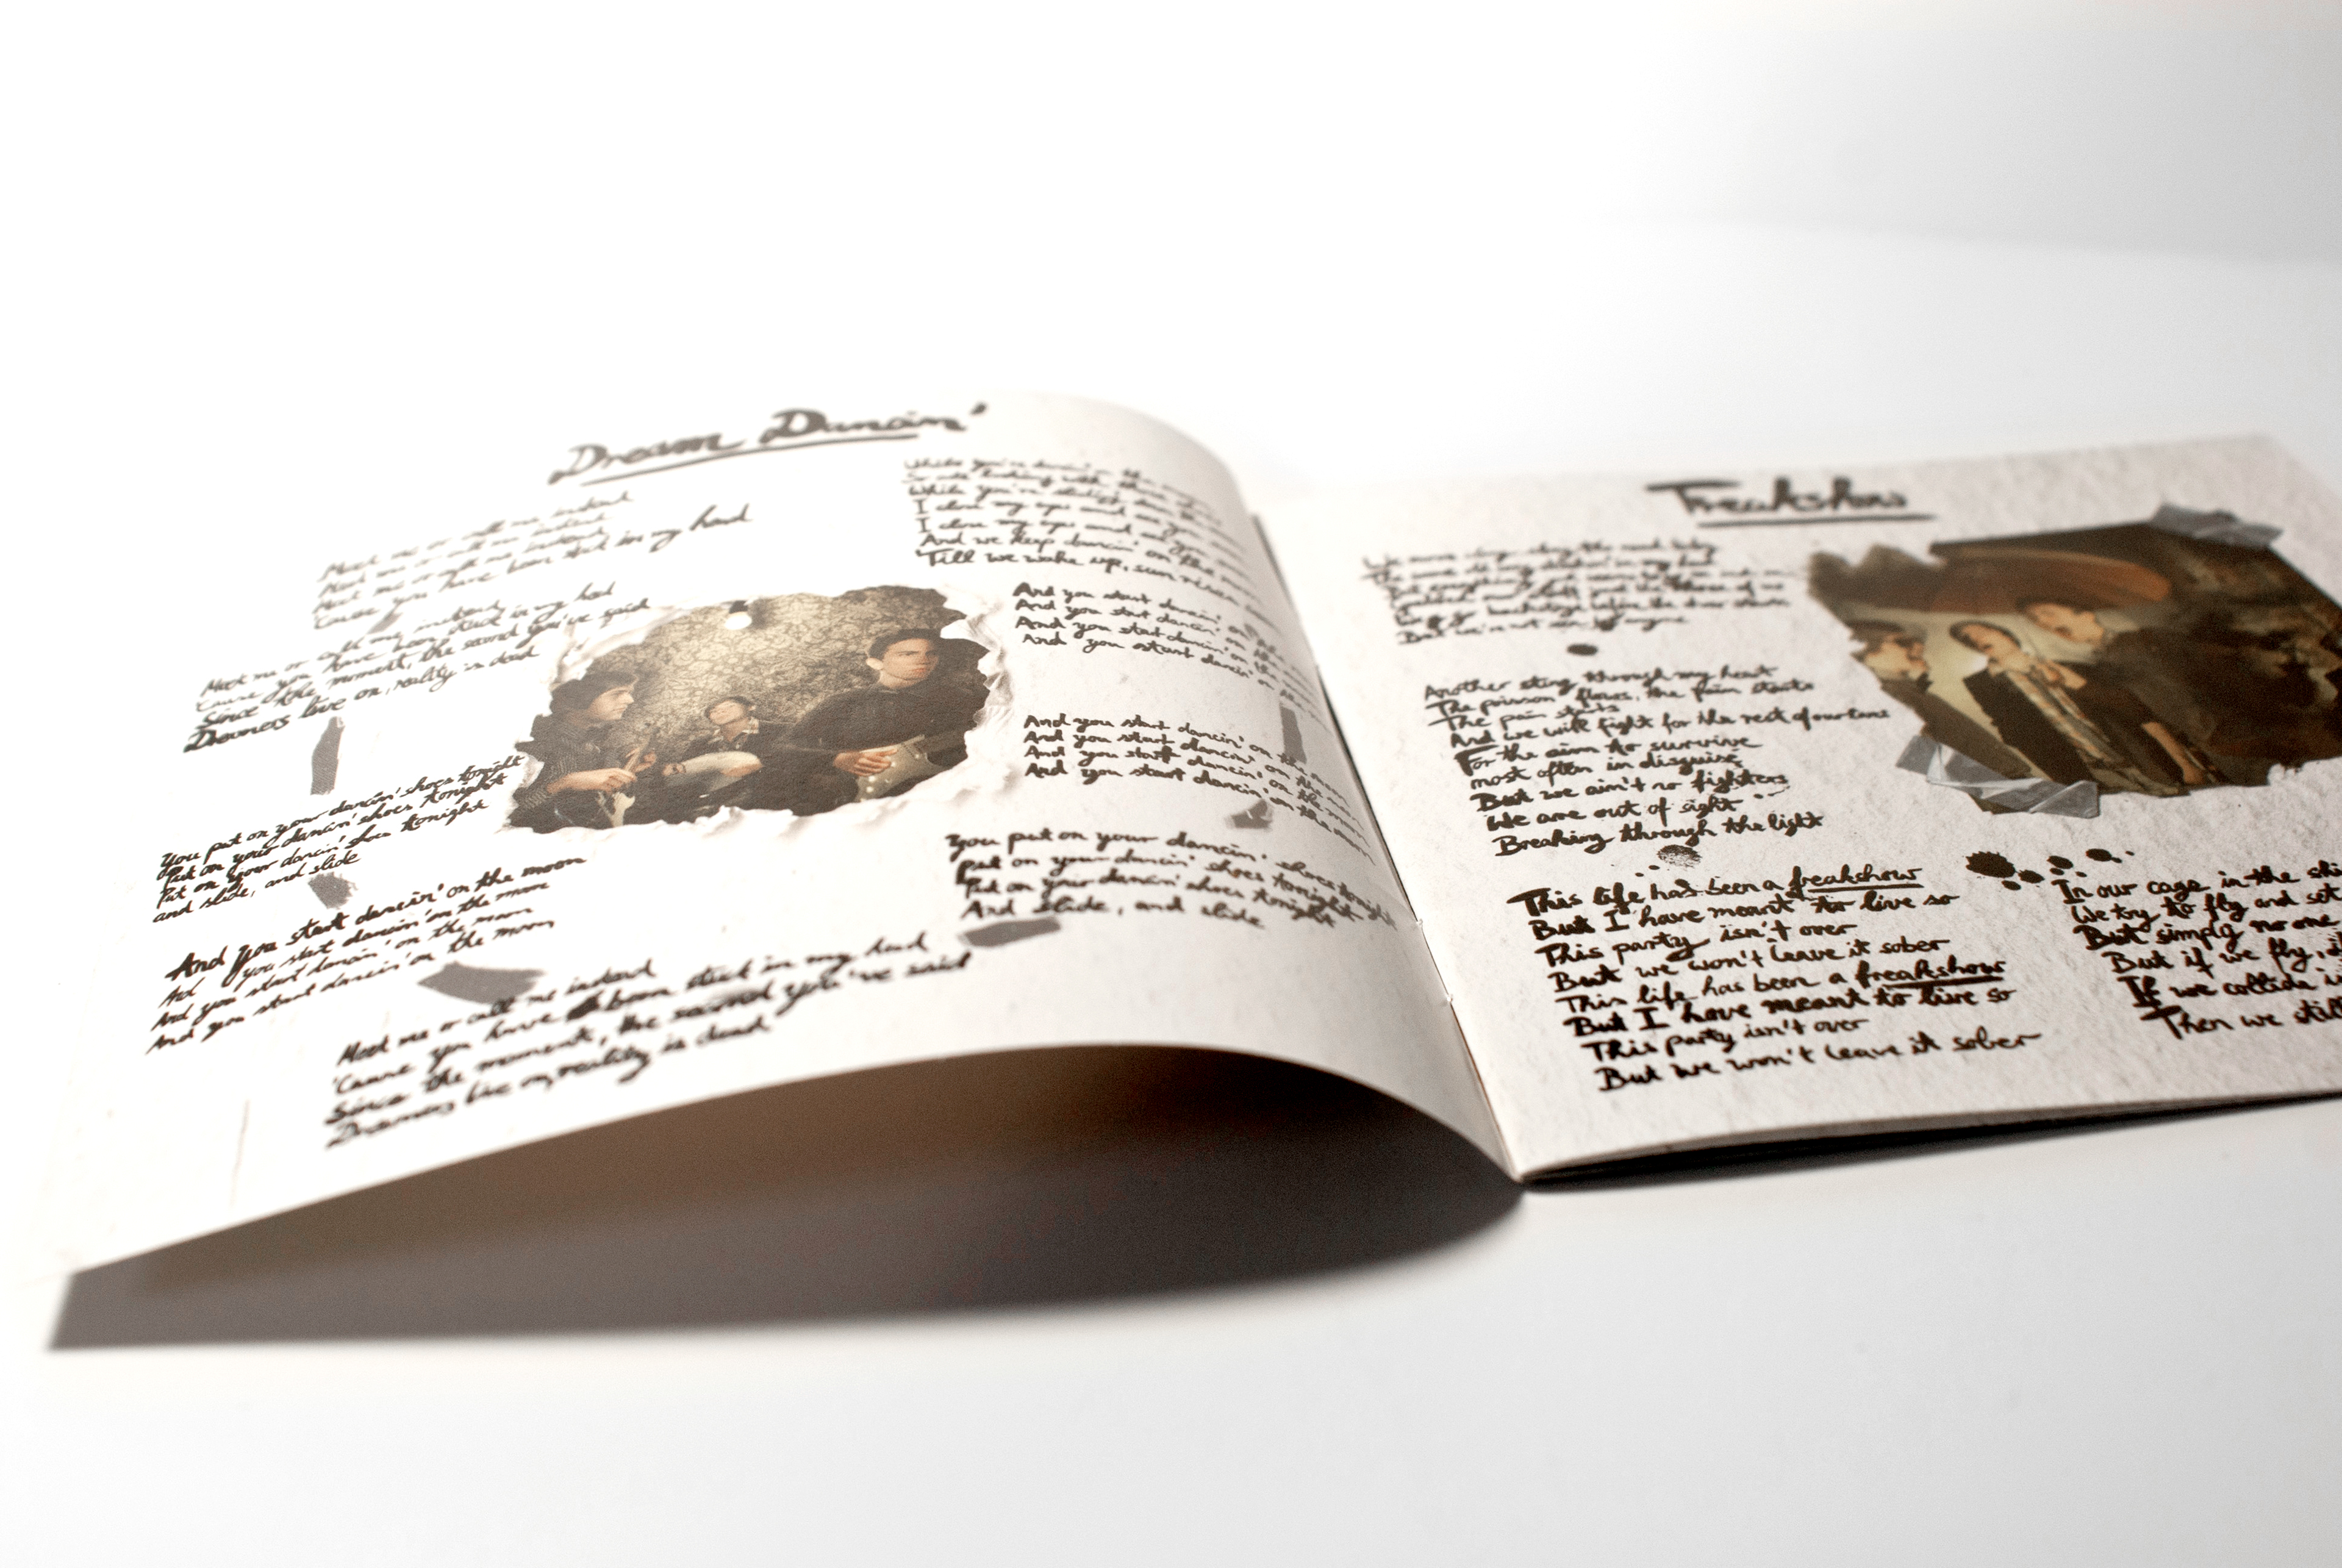 Dream Dancin'
Meet me or call me instead
Meet me or call me instead
Meet me or call me instead
'Cause you have been stuck in my head
Meet me or call me instead
'Cause you have been stuck in my head
Since the moment, the second you've said
Dreamers live on, reality is dead
You put on your dancin' shoes tonight
Put on your dancin' shoes tonight
Put on your dancin' shoes tonight
and slide, and slide
And you start dancin' on the moon
And you start dancin' on the moon
And you start dancin' on the moon
And you start dancin' on the moon
Meet me or call me instead
'Cause you have been stuck in my head
Since the moment, the second you've said
Dreamers live on, reality is dead
While you're dancin'
While you're
I close my eyes and
I close my eyes and
And we keep dancin' on the
'Till we wake up, sun
And you start dancin' on
And you start dancin' on the
And you start dancin' on the
And you start dancin' on
And you start dancin' on the
And you start dancin' on the moon
And you start dancin' on the moon
And you start dancin' on the moon
You put on your dancin' shoes tonight
Put on your dancin' shoes tonight
Put on your dancin' shoes tonight
And slide, and slide
Freakshow
Another sting through my heart
The poison flows, the pain starts
The pain starts
And we will fight for the rest of our lives
For the aim to survive
most often in disguise
But we ain't no fighters
We are out of sight
Breaking through the light
This life has been a freakshow
But I have meant to live so
This party isn't over
But we won't leave it sober
This life has been a freakshow
But I have meant to live so
This party isn't over
But we won't leave it sober
In our cage in the
We try to fly and set
But simply no one
But if we fly,
If we collide
Then we still